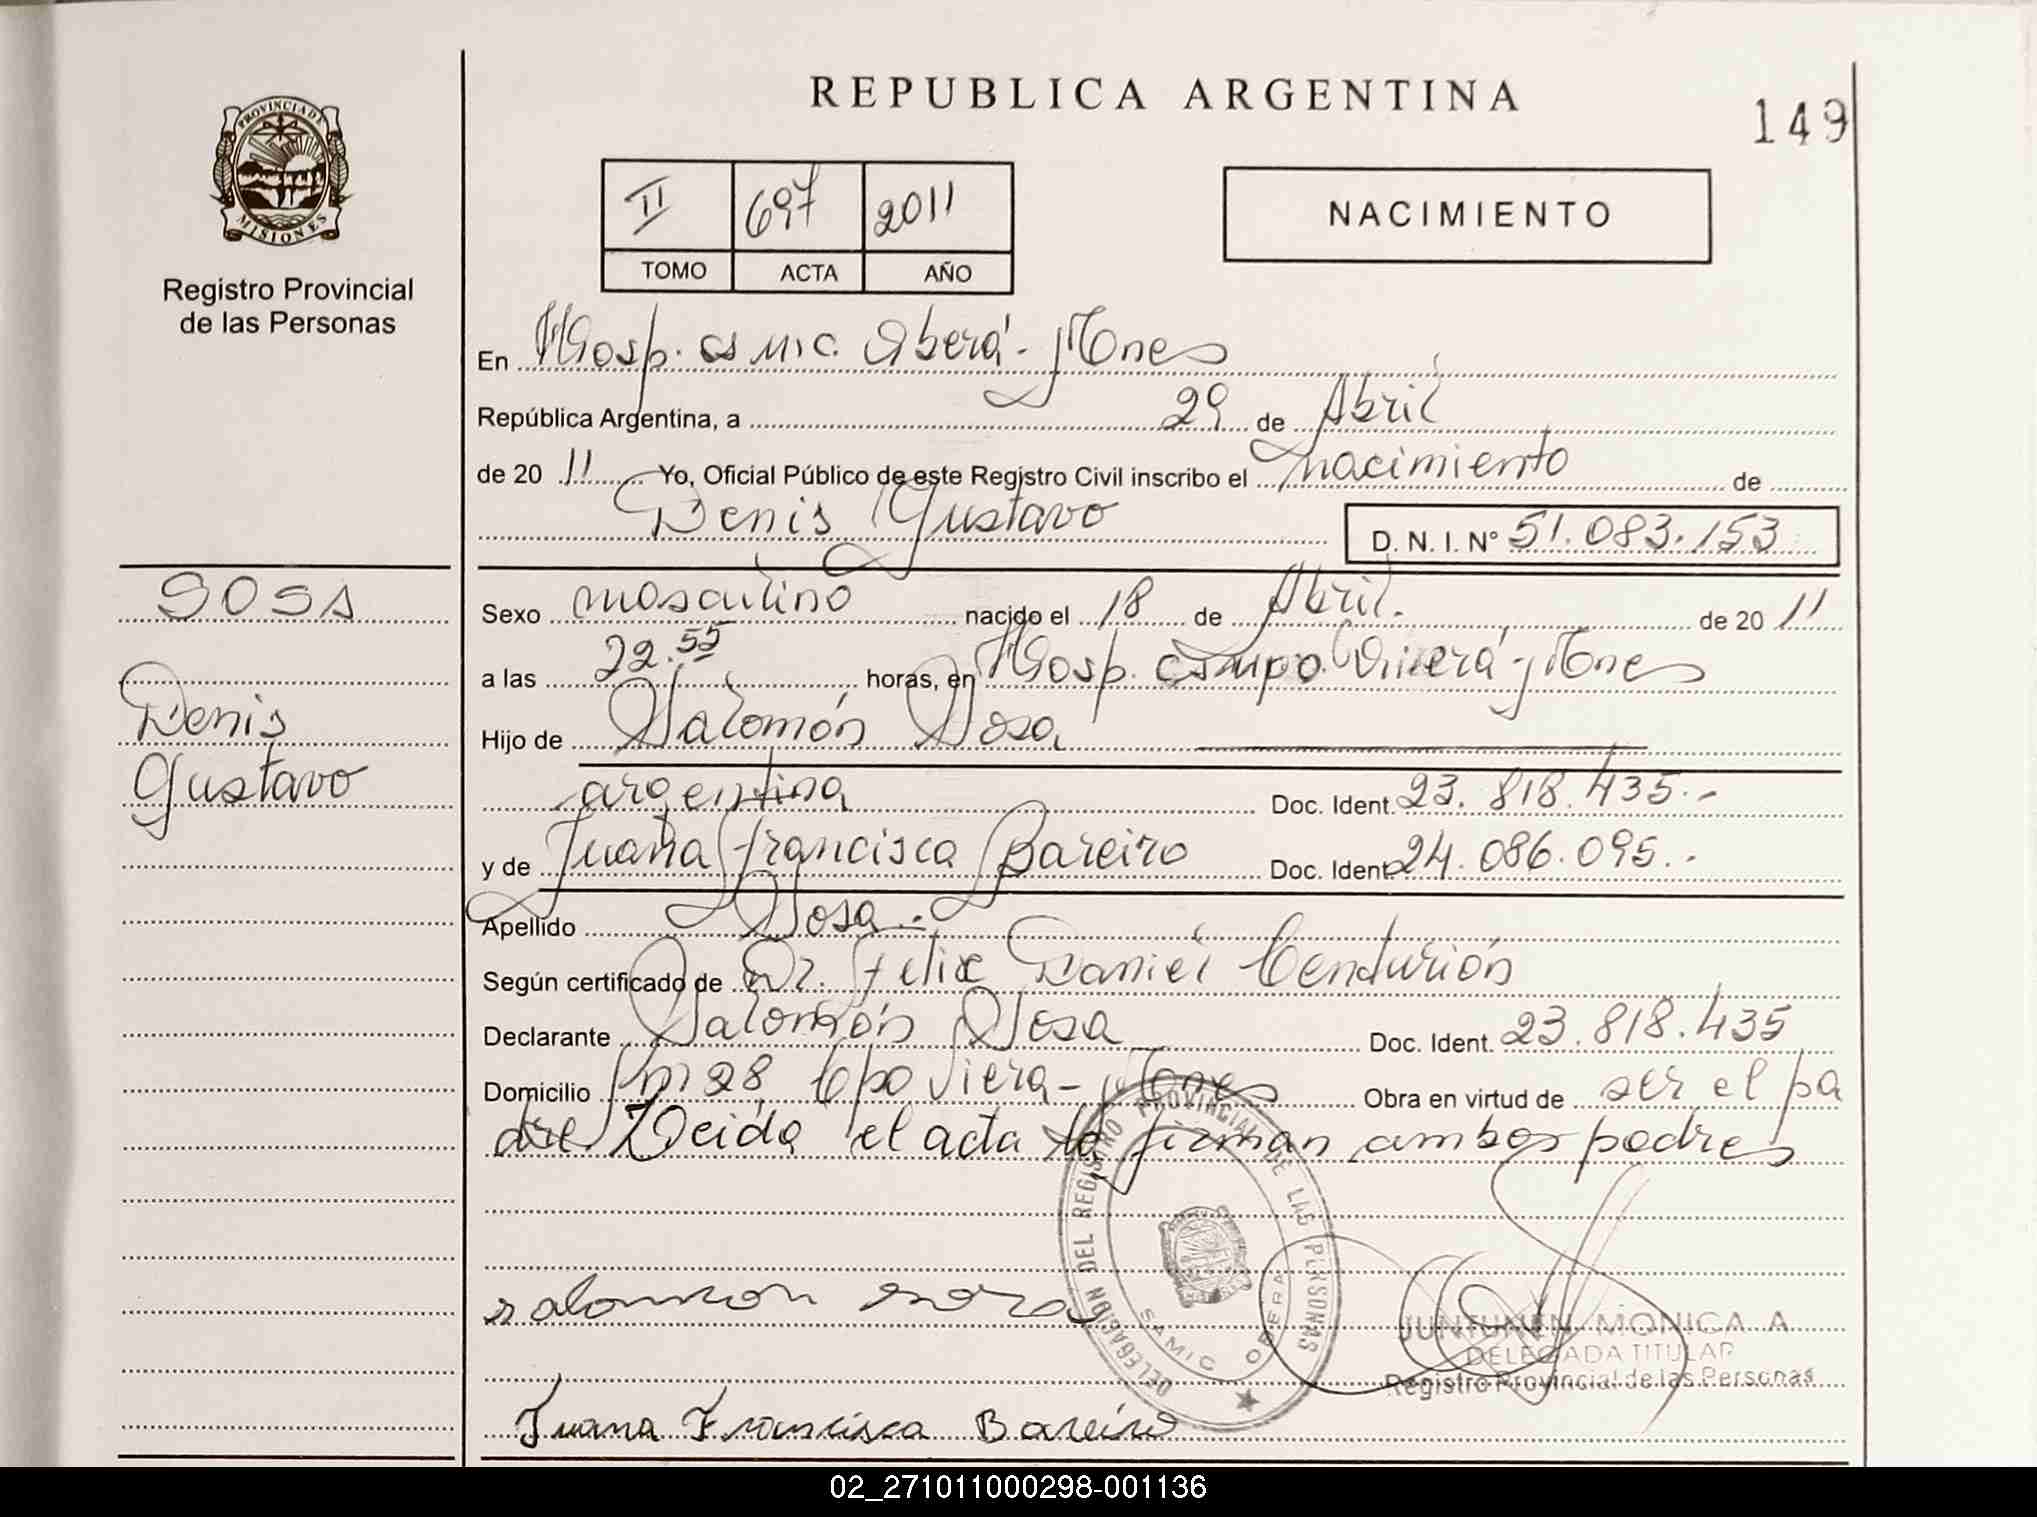 REPUBLICA ARGENTINA
149
PROVINCIA DE
MISIONES
Registro Provincial
de las Personas
II 697 2011
TOMO ACTA AÑO
NACIMIENTO
En Hosp. Oberá - Mnes
República Argentina, a 29 de Abril
de 20 11 Yo, Oficial Público de este Registro Civil inscribo el nacimiento de
Denis Gustavo D. N. I. N° 51.083.153
SOSA
Denis
Gustavo
Sexo masculino nacido el 18 de Abril. de 20 11
a las 22.55 horas, en Hosp. Mnes
Hijo de Salomón Sosa
argentina Doc. Ident. 23.818.435.-
y de Juana Francisca Bareiro Doc. Ident 24.086.095.-
Apellido Sosa.-
Según certificado de Dr. Felix Daniel Centurión
Declarante Salomón Sosa Doc. Ident. 23.818.435
Domicilio Km 28 Cpo Viera - Mnes Obra en virtud de ser el pa
dre Leida el acta la firman ambos padres
DELEGACIÓN DEL REGISTRO PROVINCIAL DE LAS PERSONAS
SAMIC OBERA
salomon sosa
JUNTUNEN MONICA A
DELEGADA TITULAR
Registro Provincial de las Personas
Juana Francisca Bareiro
02_271011000298-001136